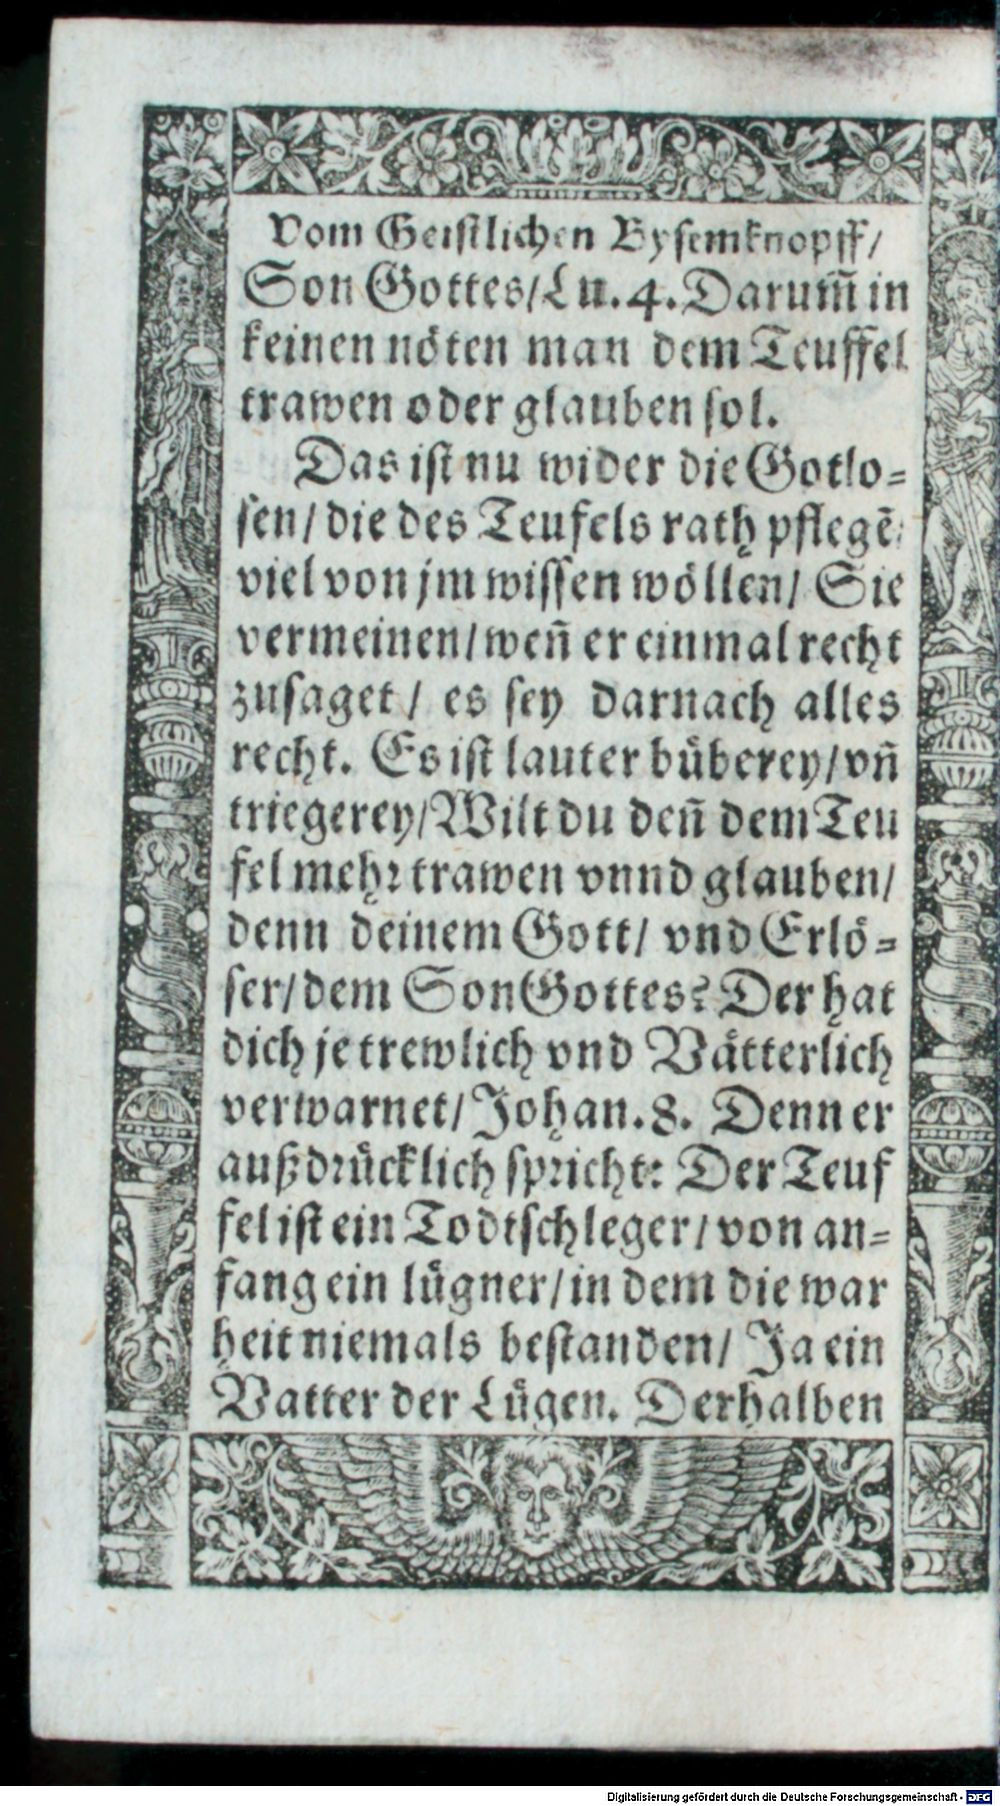 Vom Geistlichen Bysemknopff/
Son Gottes/Lu. 4. Darum̃ in
keinen nöten man dem Teuffel
trawen oder glauben sol.
Das ist nu wider die Gotlo=
sen/ die des Teufels rath pflegẽ/
viel von jm wissen wöllen/ Sie
vermeinen/ weñ er einmal recht
zusaget/ es sey darnach alles
recht. Es ist lauter büberey/ vñ
triegerey/ Wilt du deñ dem Teu
fel mehr trawen vnnd glauben/
denn deinem Gott/ vnd Erlö=
ser/ dem Son Gottes? Der hat
dich je trewlich vnd Vätterlich
verwarnet/ Johan. 8. Denn er
außdrücklich spricht: Der Teuf
fel ist ein Todtschleger/ von an=
fang ein lügner/ in dem die war
heit niemals bestanden/ Ja ein
Vatter der Lügen. Derhalben
Digitalisierung gefördert durch die Deutsche Forschungsgemeinschaft - DFG